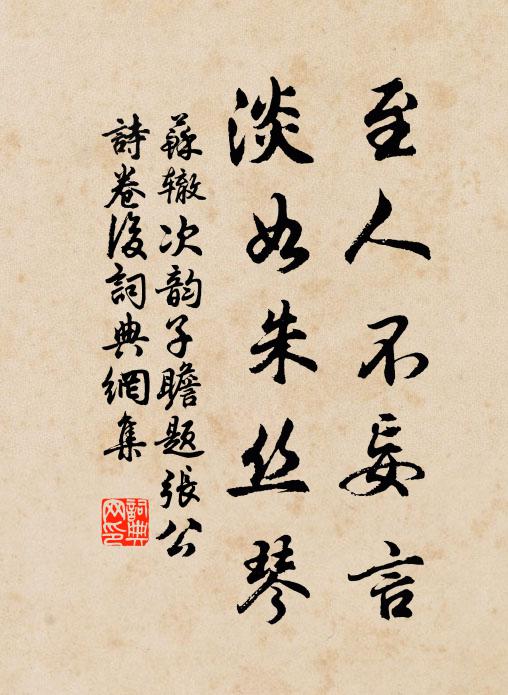 至人不妄言
淡如朱丝琴
蘇辙次韵子瞻题張公
詩卷後詞典網集
詞典网印